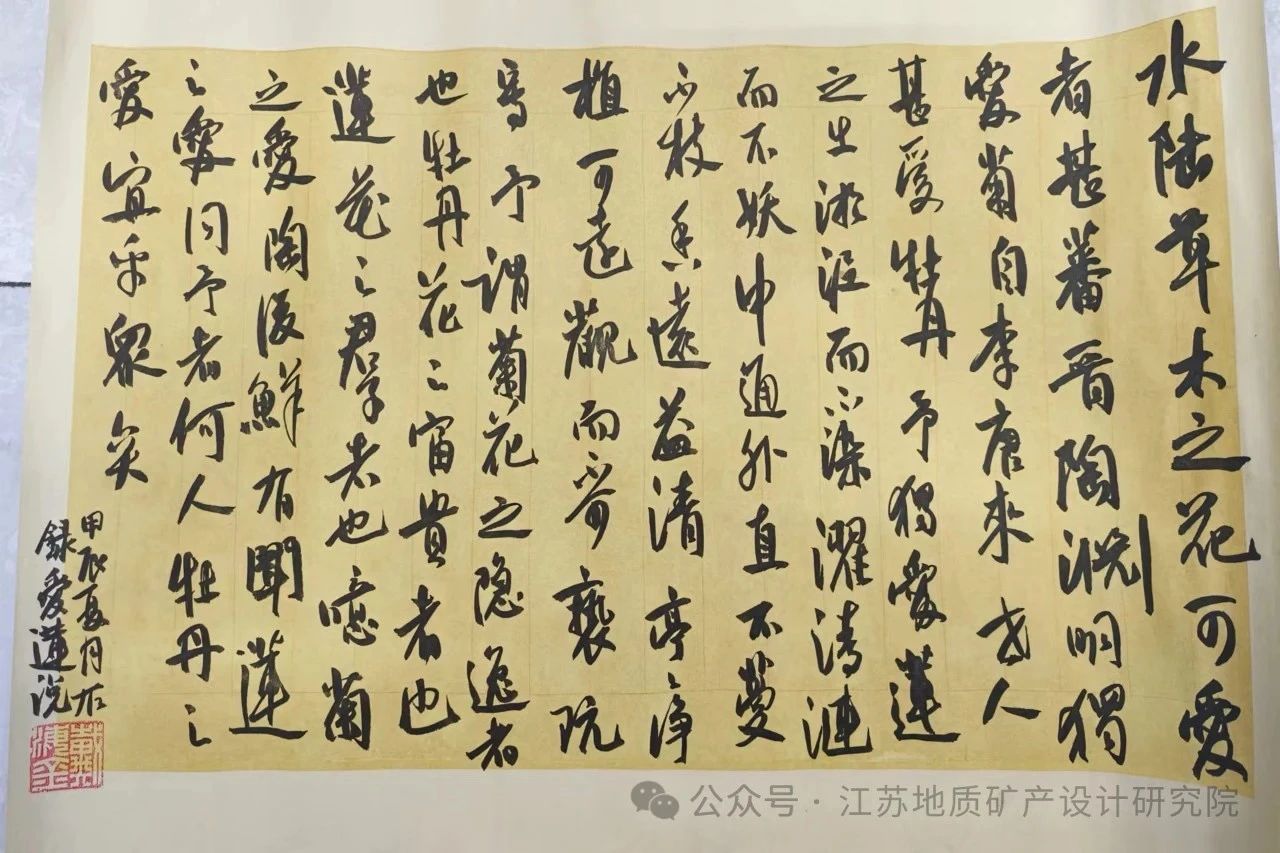 水陸草木之花可愛
者甚蕃晋陶渊明獨
愛菊自李唐來世人
甚愛牡丹予獨愛蓮
之出淤泥而不染濯清漣
而不妖中通外直不蔓
不枝香遠益清亭亭净
植可遠觀而不可褻玩
焉予謂菊花之隐逸者
也牡丹花之富貴者也
蓮花之君子者也噫菊
之愛陶後鮮有聞蓮
之愛同予者何人牡丹之
愛宜乎衆矣
甲辰夏月
録愛蓮説
公众号·江苏地质矿产设计研究院